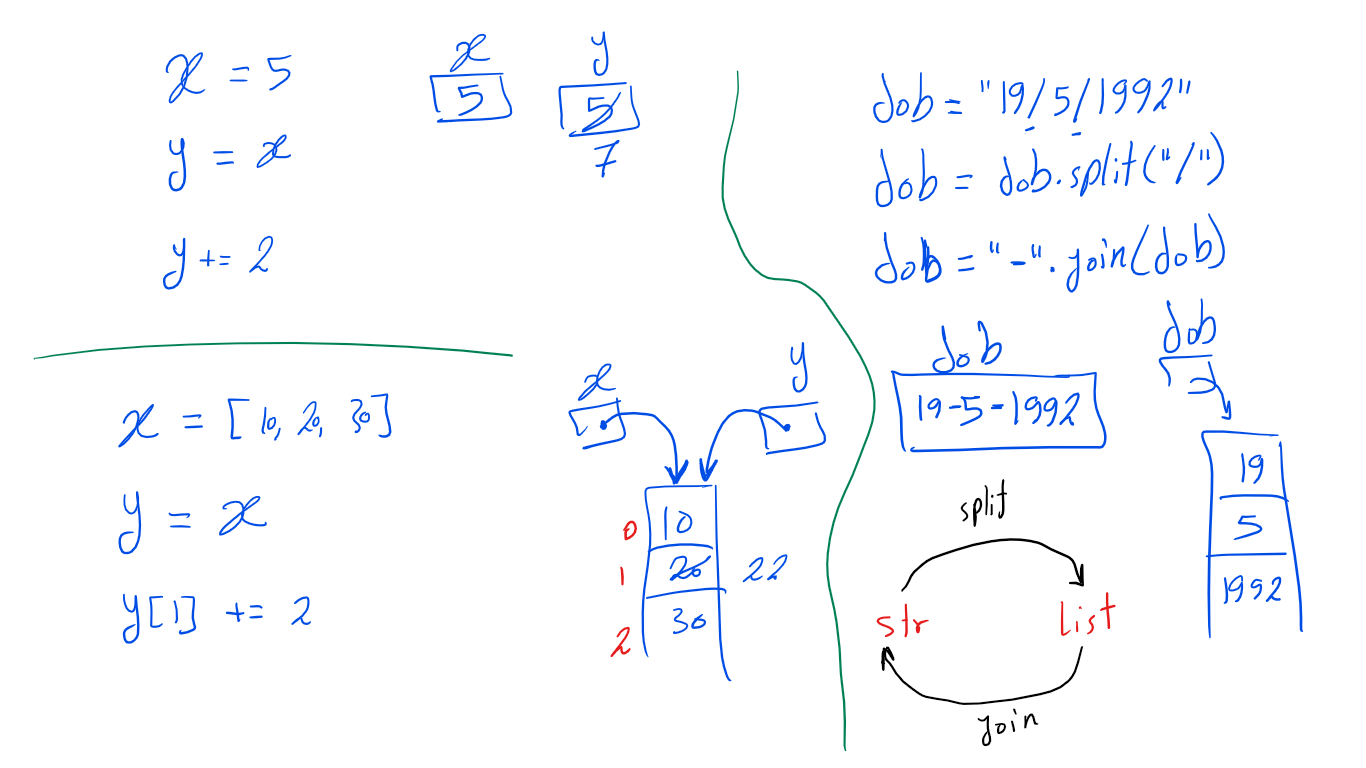 x = 5
y = x
y += 2
x
5
y
5
7
x = [10, 20, 30]
y = x
y[1] += 2
x
y
0
10
1
20
22
2
30
dob = "19/5/1992"
dob = dob.split("/")
dob = "-".join(dob)
dob
19-5-1992
dob
19
5
1992
split
str
list
join